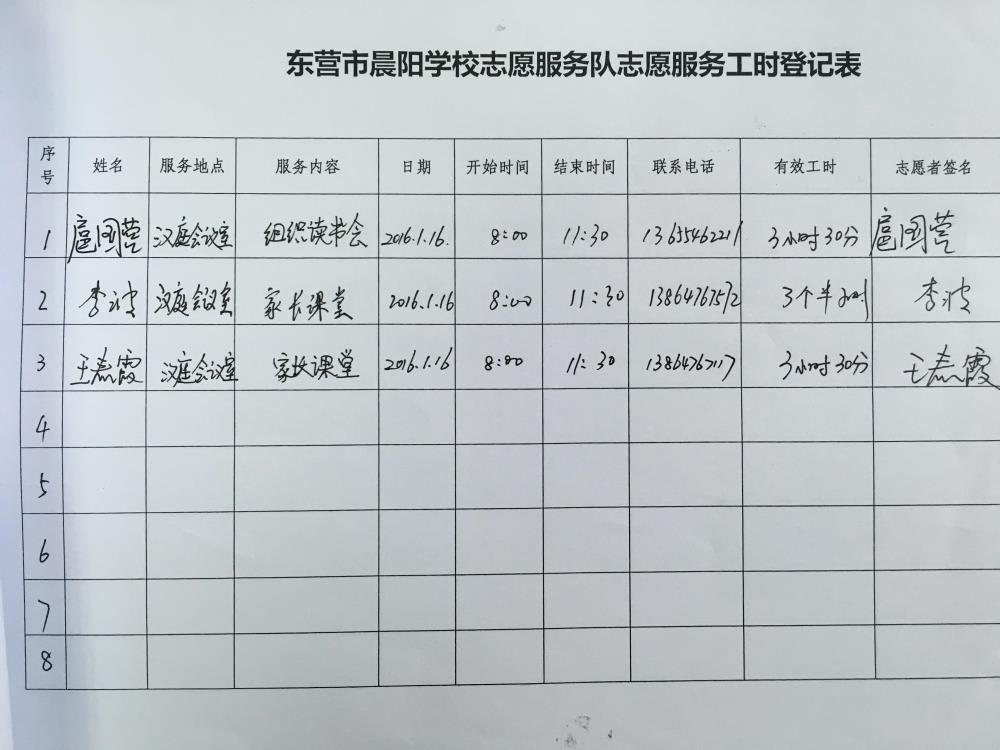 东营市晨阳学校志愿服务队志愿服务工时登记表
序号 姓名 服务地点 服务内容 日期 开始时间 结束时间 联系电话 有效工时 志愿者签名
1 扈国营 汉庭会议室 组织读书会 2016.1.16. 8:00 11:30 13655462211 3小时30分 扈国营
2 李波 汉庭会议室 家长课堂 2016.1.16 8:00 11:30 13864767572 3个半小时 李波
3 王春霞 汉庭会议室 家长课堂 2016.1.16 8:00 11:30 13864767117 3小时30分 王春霞
4
5
6
7
8